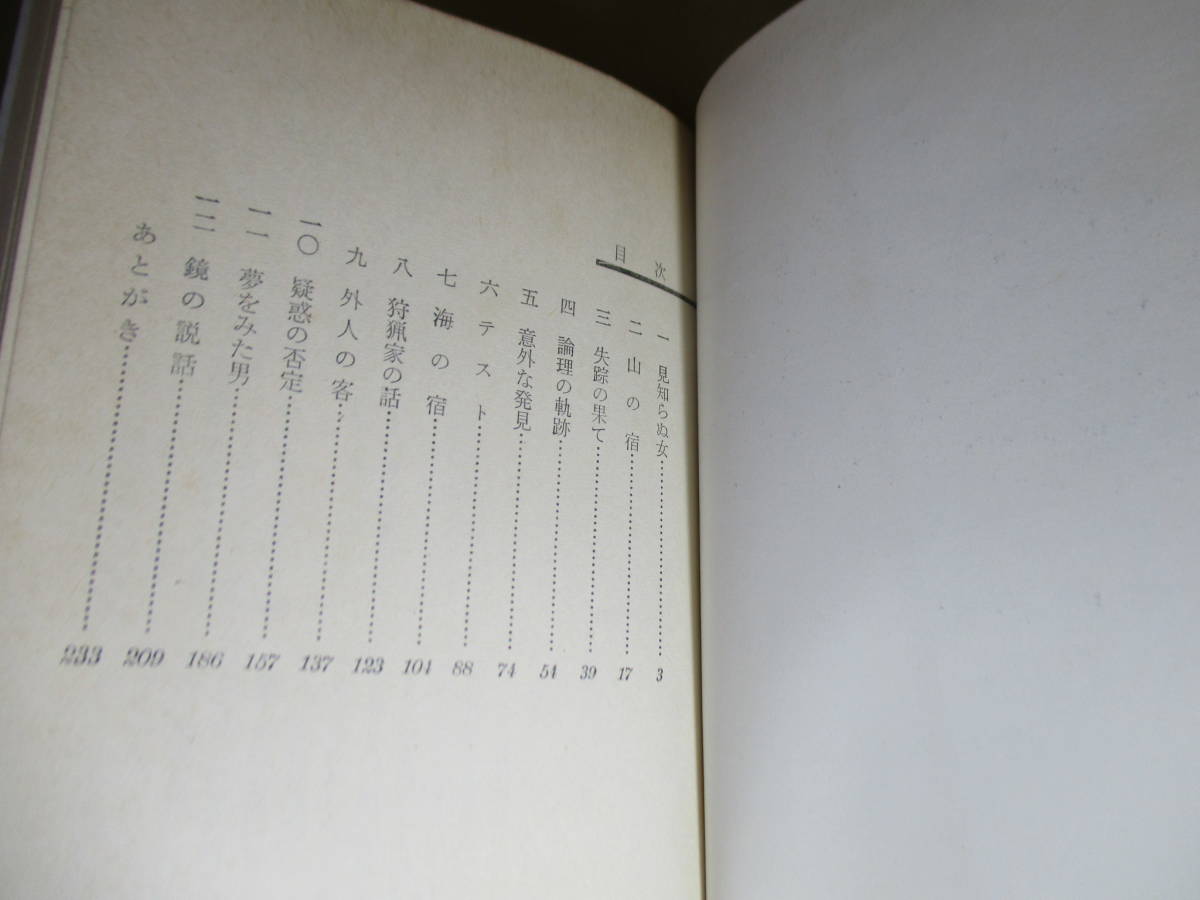 目次
一 見知らぬ女…………3
二 山の宿…………17
三 失踪の果て…………39
四 論理の軌跡…………54
五 意外な発見…………74
六 テスト…………88
七 海の宿…………104
八 狩猟家の話…………123
九 外人の客…………137
一〇 疑惑の否定…………157
一一 夢をみた男…………186
一二 鏡の説話…………209
あとがき…………233